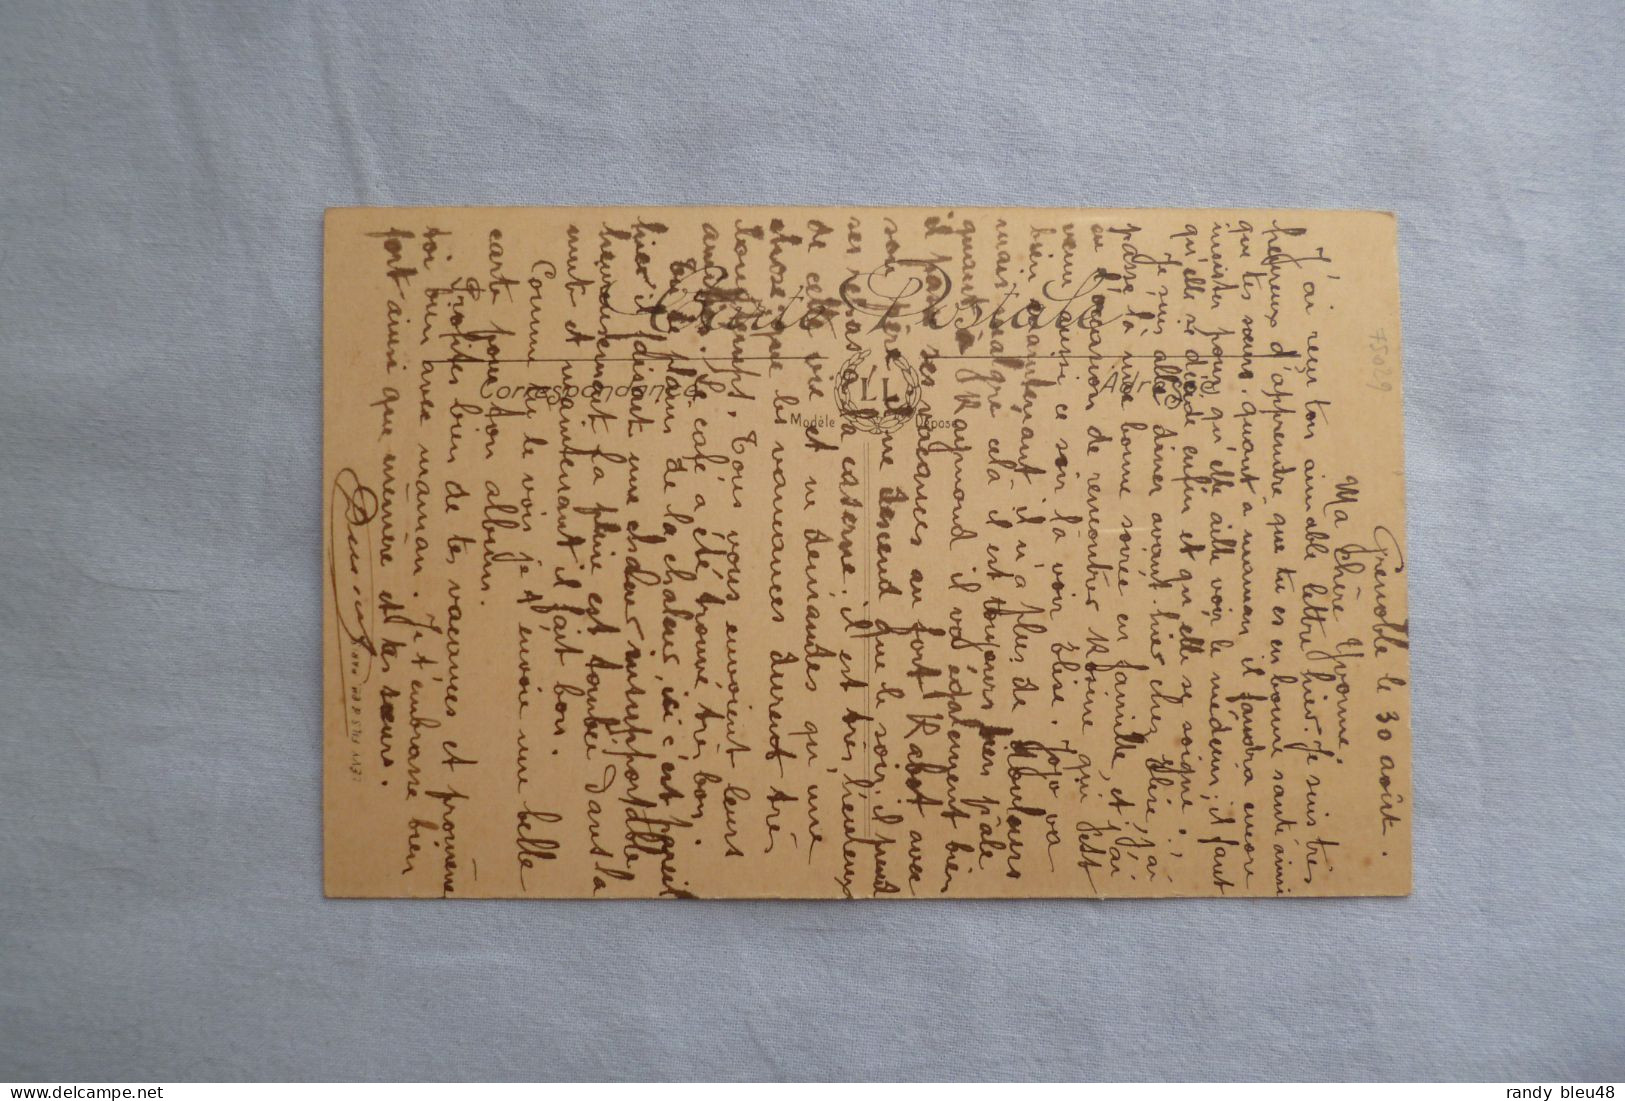 Grenoble le 30 août.
Ma chère Yvonne,
J'ai reçu ton aimable lettre hier. Je suis très
heureux d'apprendre que tu es en bonne santé ainsi
que tes sœurs, quant à maman il faudra encore
insister pour qu'elle aille voir le médecin, il faut
qu'elle se décide enfin et qu'elle se soigne.
Je suis allé dîner avant hier chez Elise, j'ai
passé là une bonne soirée en famille, et j'ai
eu l'occasion de rencontrer Moïne qui s'est
venu aussi ce soir là voir Elise. Jojo va
bien maintenant il n'a plus de
mais malgré celà il est toujours bien pâle,
quant à Raymond il va également bien
il passe ses vacances au fort Rabot avec
son père et ne descend que le soir, il prend
ses repas à la caserne, il est très heureux
de cette vie et ne demande qu'une
chose que les vacances durent très
longtemps. Tous vous envoient leurs
amitiés. Le café a été trouvé très bon.
Tu te plains de la chaleur, ici c'est pareil
hier il faisait une chaleur insupportable,
heureusement la pluie est tombée dans la
nuit et maintenant il fait bon.
Comme tu le vois je t'envoie une belle
carte pour ton album.
Profites bien de tes vacances et promène
toi bien avec maman. Je t'embrasse bien
fort ainsi que mémère et tes sœurs.
Carte Postale
Correspondance
Adresse
LL
Modèle Déposé
75029
randy bleu48